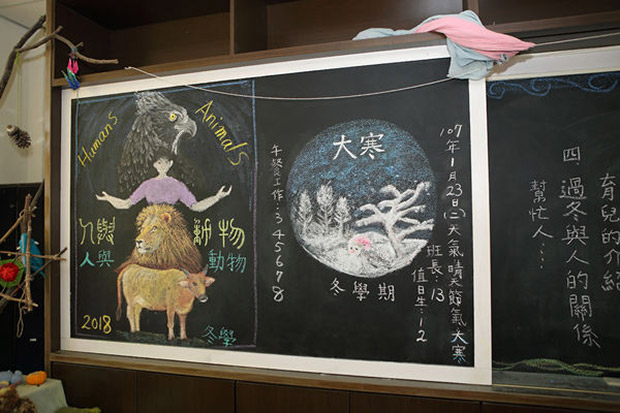 Humans
Animals
人與
動物
人與
動物
2018
冬學
大寒
冬學期
107年1月23日(二)天氣晴天節氣大寒
班長:13
值日生:12
午餐工作:345678
育兒的介紹
四.過冬與人的關係
幫忙人:..